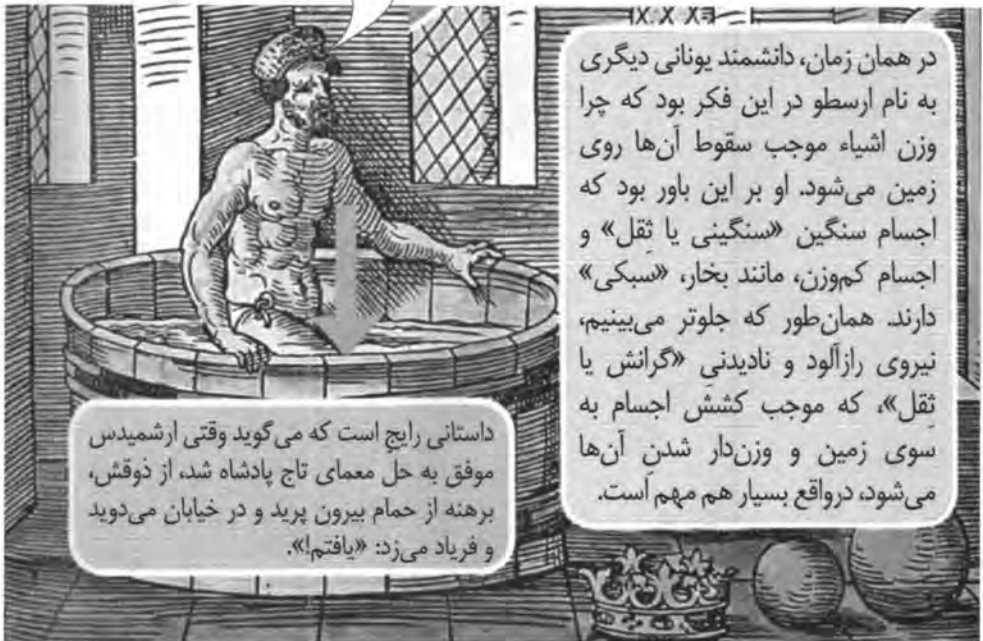 در همان زمان، دانشمند یونانی دیگری
به نام ارسطو در این فکر بود که چرا
وزن اشیاء موجب سقوط آن‌ها روی
زمین می‌شود. او بر این باور بود که
اجسام سنگین «سنگینی یا ثِقل» و
اجسام کم‌وزن، مانند بخار، «سبکی»
دارند. همان‌طور که جلوتر می‌بینیم،
نیروی رازآلود و نادیدنیِ «گرانش یا
ثِقل»، که موجب کششِ اجسام به
سوی زمین و وزن‌دار شدنِ آن‌ها
می‌شود، درواقع بسیار هم مهم است.
داستانی رایج است که می‌گوید وقتی ارشمیدس
موفق به حل معمای تاج پادشاه شد، از ذوقش،
برهنه از حمام بیرون پرید و در خیابان می‌دوید
و فریاد می‌زد: «یافتم!».